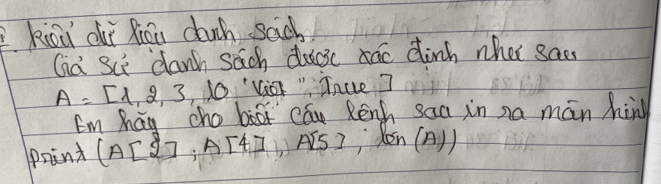 2. Kiểu dữ liệu danh sách
Giả sử danh sách được xác định như sau
A = [1, 2, 3, 10 "Việt", True]
Em hãy cho biết câu lệnh sau in ra màn hình
print (A[2], A[4], A[5], len (A))